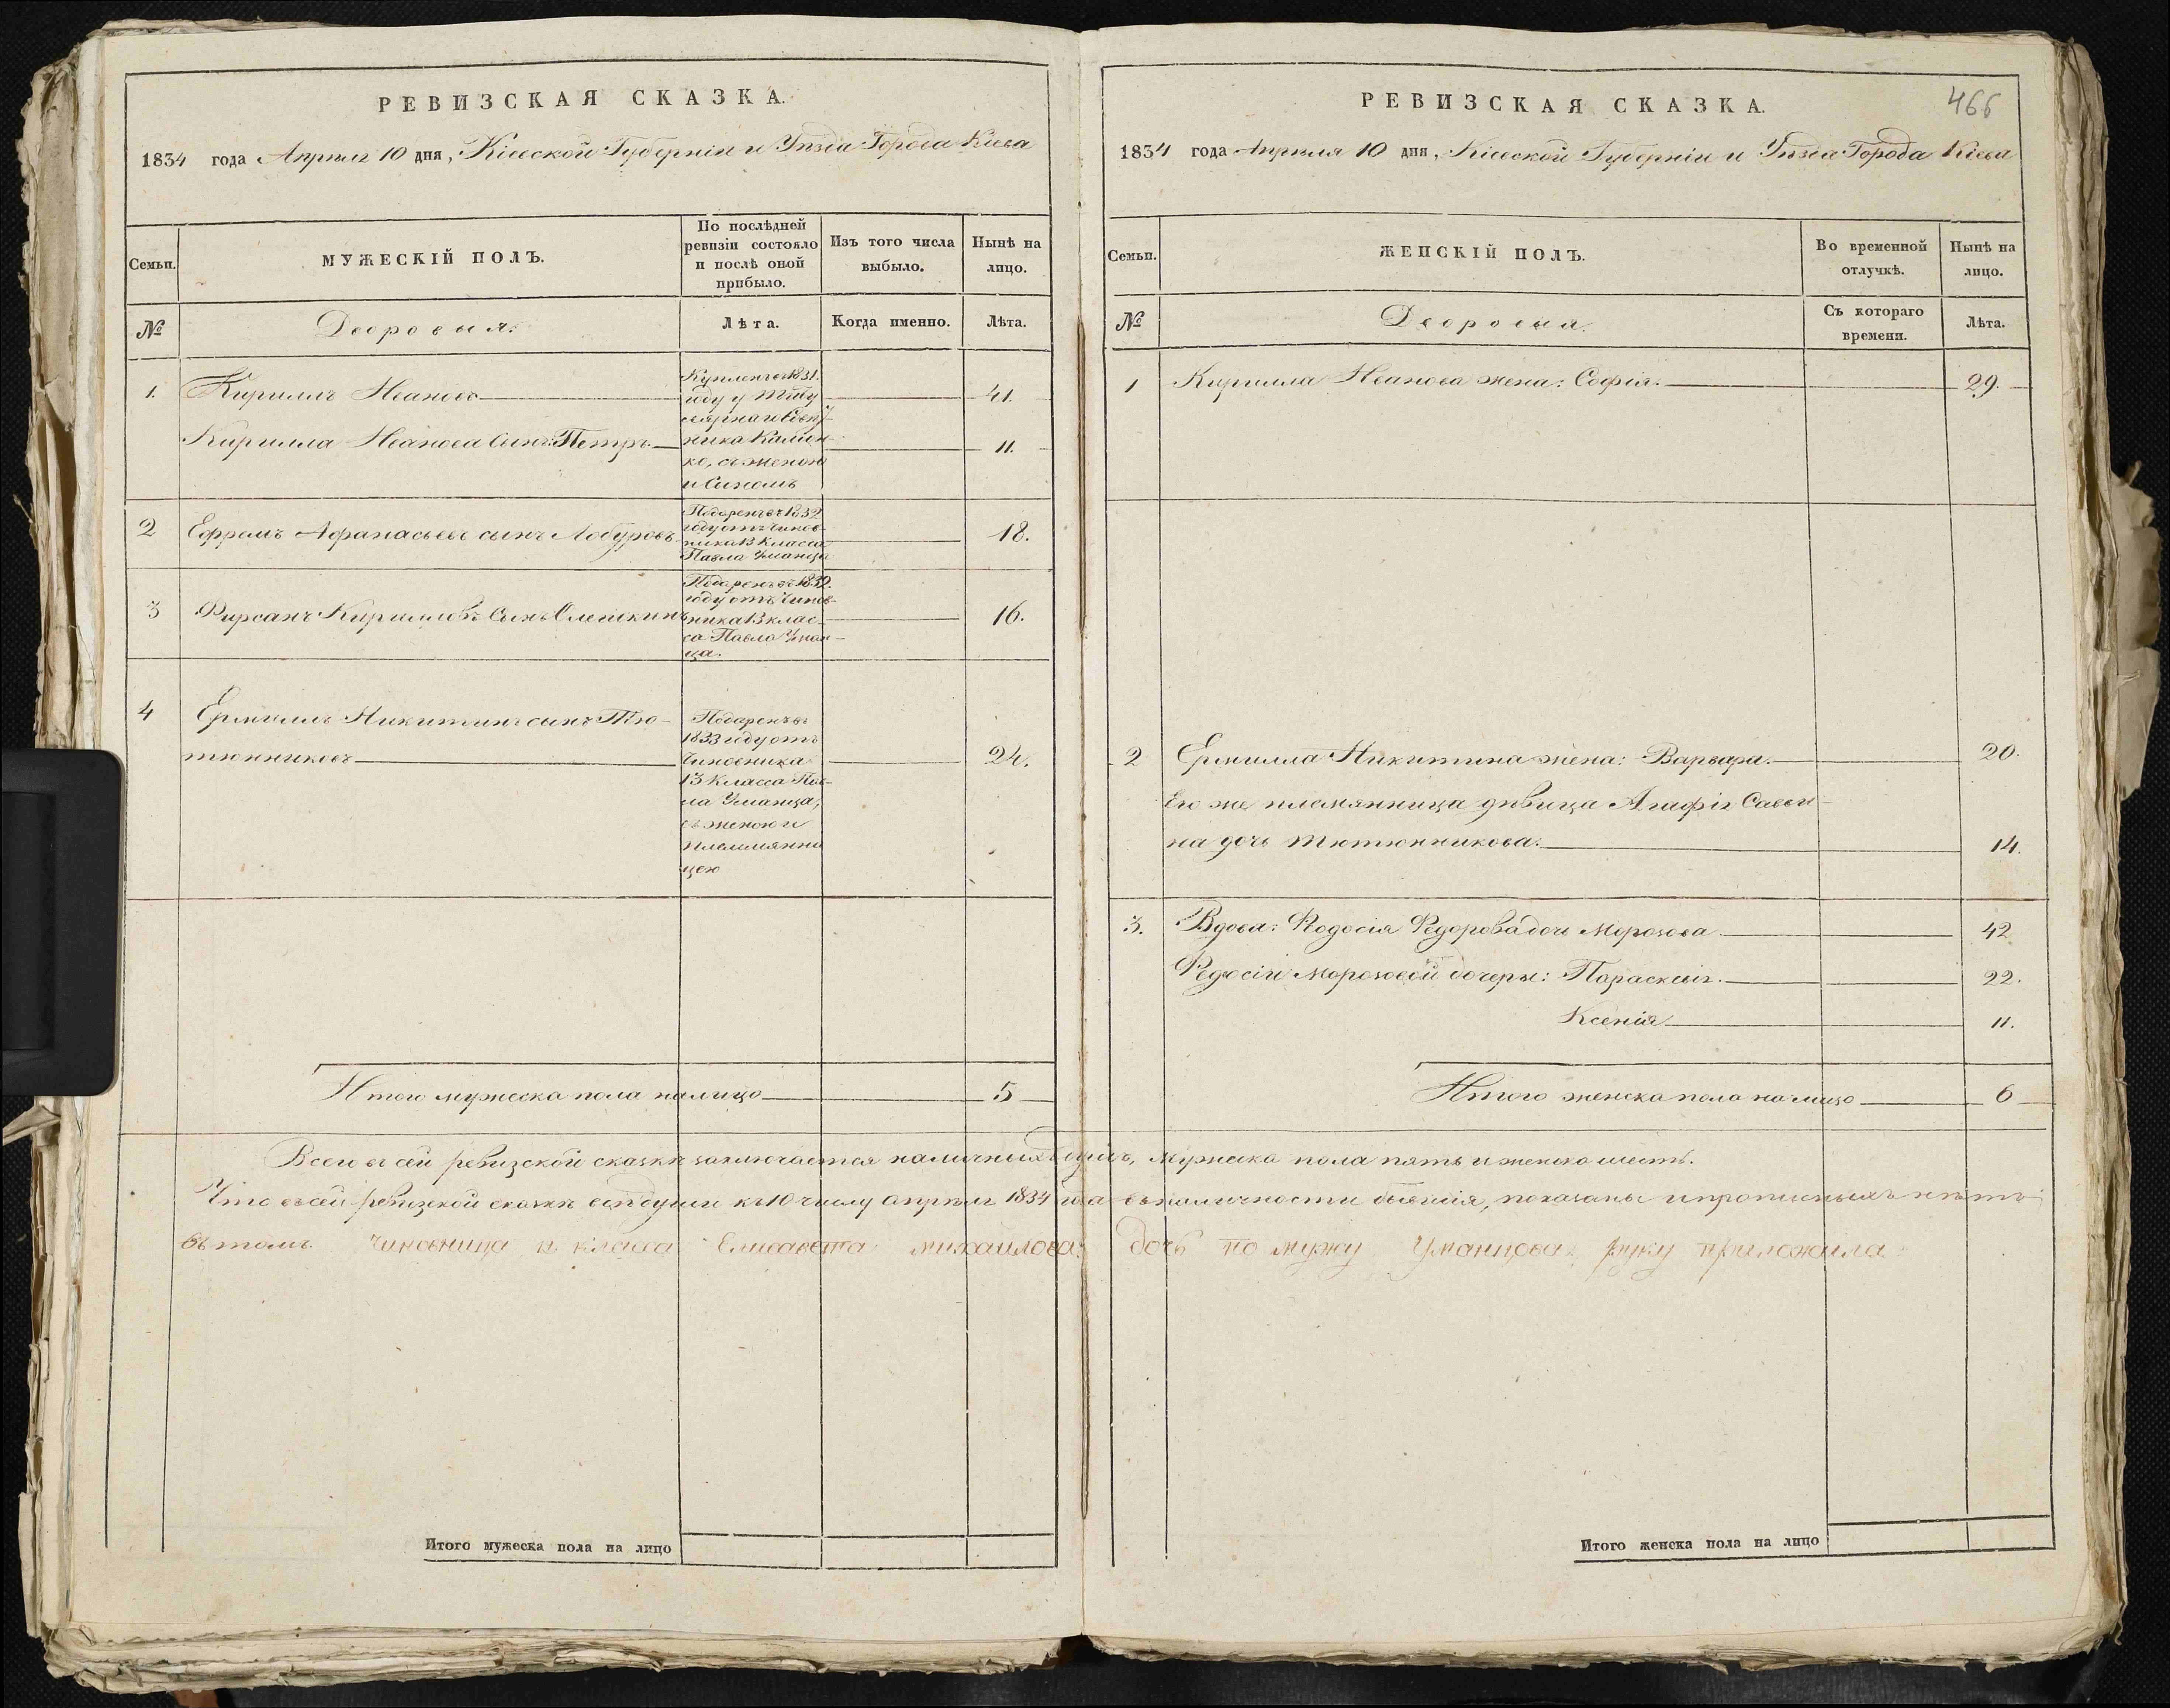 РЕВИЗСКАЯ СКАЗКА.
1834 года Апрѣля 10 дня, Кіевской Губерніи и Уѣзда Города Кіева
Семьи.
МУЖЕСКІЙ ПОЛЪ.
По послѣдней ревизіи состояло и послѣ оной прибыло.
Изъ того числа выбыло.
Нынѣ на лицо.
№
Дворовыя.
Лѣта.
Когда именно.
Лѣта.
1.
Кириллъ Ивановъ
41.
Кирилла Иванова Сынъ: Петръ.
11.
Купленъ въ 1831.
году у Титу
лярнаго Совѣт-
ника
ко, съ женою
и Сыномъ
2
Ефремъ Афанасьевъ сынъ Лобуровъ
18.
Подаренъ въ 1832
году отъ Чинов-
ника 13 Класса
Павла Уманца
3
Фирсанъ Кирилловъ Сынъ Олешкинъ
16.
Подаренъ въ 1832.
году отъ Чинов-
ника 13 клас-
са Павла Уман-
ца.
4
Ермиллъ Никитинъ сынъ Тю-
тюнниковъ
24.
Подаренъ въ
1833 году отъ
Чиновника
13 Класса Пав-
ла Уманца,
съ женою и
племянни
цею
Итого мужеска пола налицо
5
РЕВИЗСКАЯ СКАЗКА.
466
1834 года Апрѣля 10 дня, Кіевской Губерніи и Уѣзда Города Кіева
Семьи.
ЖЕНСКІЙ ПОЛЪ.
Во временной отлучкѣ.
Нынѣ на лицо.
№
Дворовыя.
Съ котораго времени.
Лѣта.
1
Кирилла Иванова жена: Софія.
29.
2
Ермилла Никитина жена: Варвара.
20.
Его же племянница дѣвица Агафія Савви-
на дочь Тютюнникова.
14.
3.
Вдова: Феодосія Федорова дочь Морозова
42
Федосіи Морозовой дочеры: Параскевія.
22.
Ксенія
11.
Итого женска пола на лицо
6
Всего въ сей ревизской сказкѣ заключается наличныхъ душъ, Мужеска пола пять и женска шесть.
Что въ сей ревизской сказкѣ всѣ души къ 10 числу апрѣля 1834 года въ наличности бывшія, показаны и прописныхъ нѣтъ
въ томъ чиновница класса Елисавета михайлова: дочь по мужу Уманцова: руку приложила
Итого мужеска пола на лицо
Итого женска пола на лицо